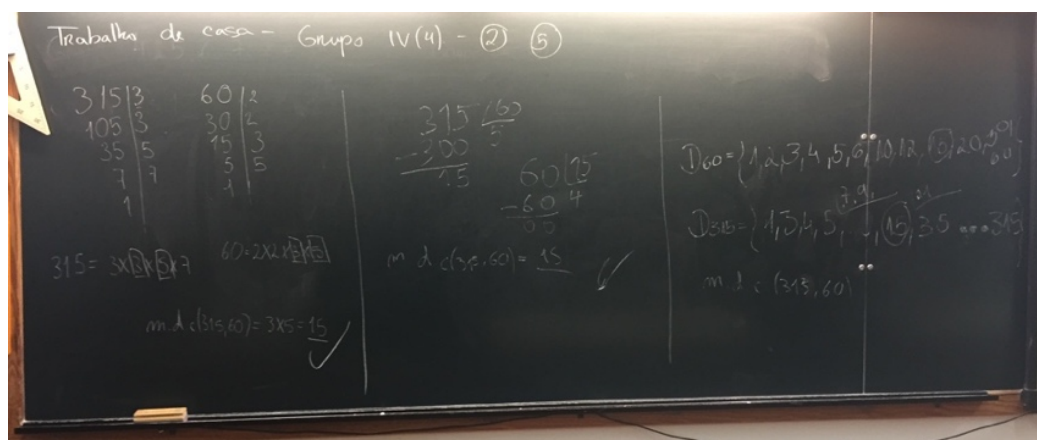 Trabalho de casa - Grupo IV(4) - ② ⑤
315|3
105|3
35|5
7|7
1|
60|2
30|2
15|3
5|5
1|
315= 3x3x5x7
60=2x2x3x5
m.d.c(315,60)=3x5=15
315 |60
-300 5
15
60|15
-60 4
00
m d c(315,60)= 15
D60={1,2,3,4,5,6,10,12,15,20,30,60}
7,9, 21
D315={1,3,4,5, ..., 15,35 ...315}
m.d.c (315,60)